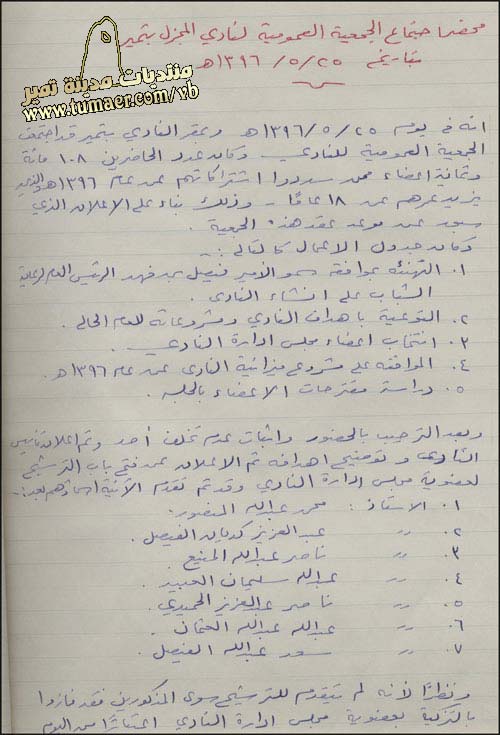 محضر اجتماع الجمعية العمومية لنادي المجزل بتمير
بتاريخ ٢٥/ ٥/ ١٣٩٦هـ
منتديات مدينة تمير
www.tumaer.com/vb
انه في يوم ٢٥/ ٥/ ١٣٩٦هـ وبمقر النادي بتمير قد اجتمعت
الجمعية العمومية للنادي وكان عدد الحاضرين ١٠٨ مائة
وثمانية اعضاء ممن سددوا اشتراكاتهم عن عام ١٣٩٦هـ والذين
يزيد عمرهم عن ١٨ عامًا - وذلك بناء على الاعلان الذي
سبق عن موعد عقد هذه الجمعية .
وكان جدول الاعمال كالتالي :-
١. التهنئه بموافقة سمو الامير فيصل بن فهد الرئيس العام لرعاية
الشباب على انشاء النادي .
٢. التوعية باهداف النادي ومشروعاته للعام الحالي .
٣. انتخاب اعضاء مجلس ادارة النادي .
٤. الموافقه على مشروع ميزانية النادي عن عام ١٣٩٦هـ .
٥. دراسة مقترحات الاعضاء بالجلسه .
وبعد الترحيب بالحضور واثبات عدم تخلف أحد وتم اعلان تأسيس
النادي وتوضيح اهدافه تم الاعلان عن فتح باب الترشيح
لعضوية مجلس ادارة النادي وقد تم تقدم الآتية اسماؤهم بعد :-
١. الاستاذ : محمد عبدالله المنصور .
٢. " عبدالعزيز الفيصل .
٣. " ناصر عبدالله المنيع .
٤. " عبدالله سليمان العبيد .
٥. " ناصر عبدالعزيز الحميدي .
٦. " عبدالله عبدالله العثمان .
٧. " سعد عبدالله الفيصل .
ونظرًا لأنه لم يتقدم للترشيح سوى المذكورين فقد فازوا
بالتزكية بعضوية مجلس ادارة النادي اعتبارًا من اليوم